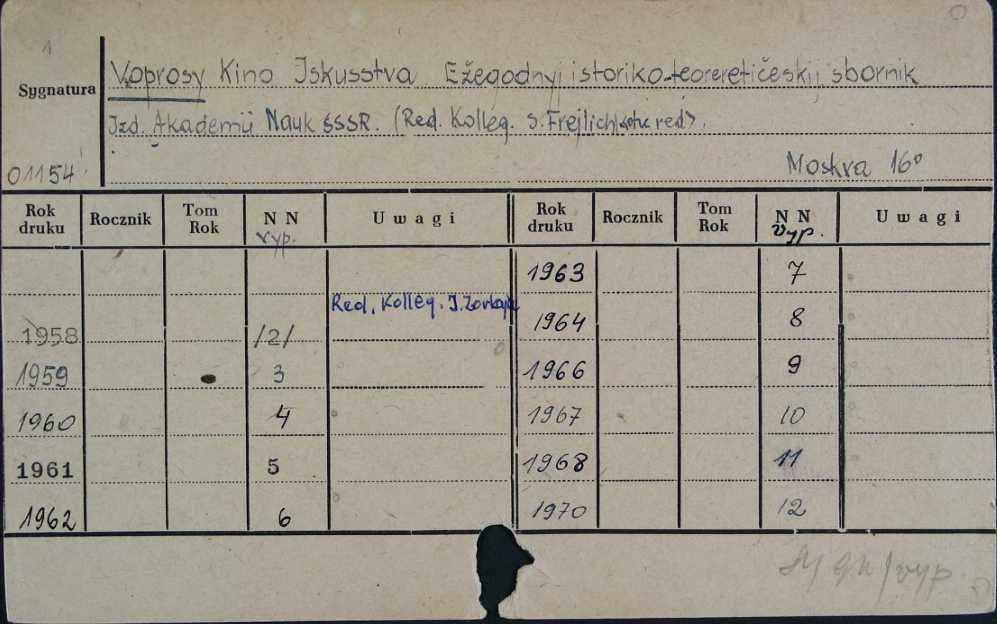 1
Voprosy Kino Iskusstva. Ežegodnyj istoriko-teoreretičeskij sbornik
Sygnatura
Izd. Akademii Nauk SSSR. (Red. Kolleg. S. Frejlich red>.
01154
Moskva 16°
Rok druku Rocznik Tom Rok N N vyp. Uwagi Rok druku Rocznik Tom Rok N N vyp. Uwagi
1963 7
Red. Kolleg. I.
1958 /2/ 1964 8
1959 3 1966 9
1960 4 1967 10
1961 5 1968 11
1962 6 1970 12
/vyp